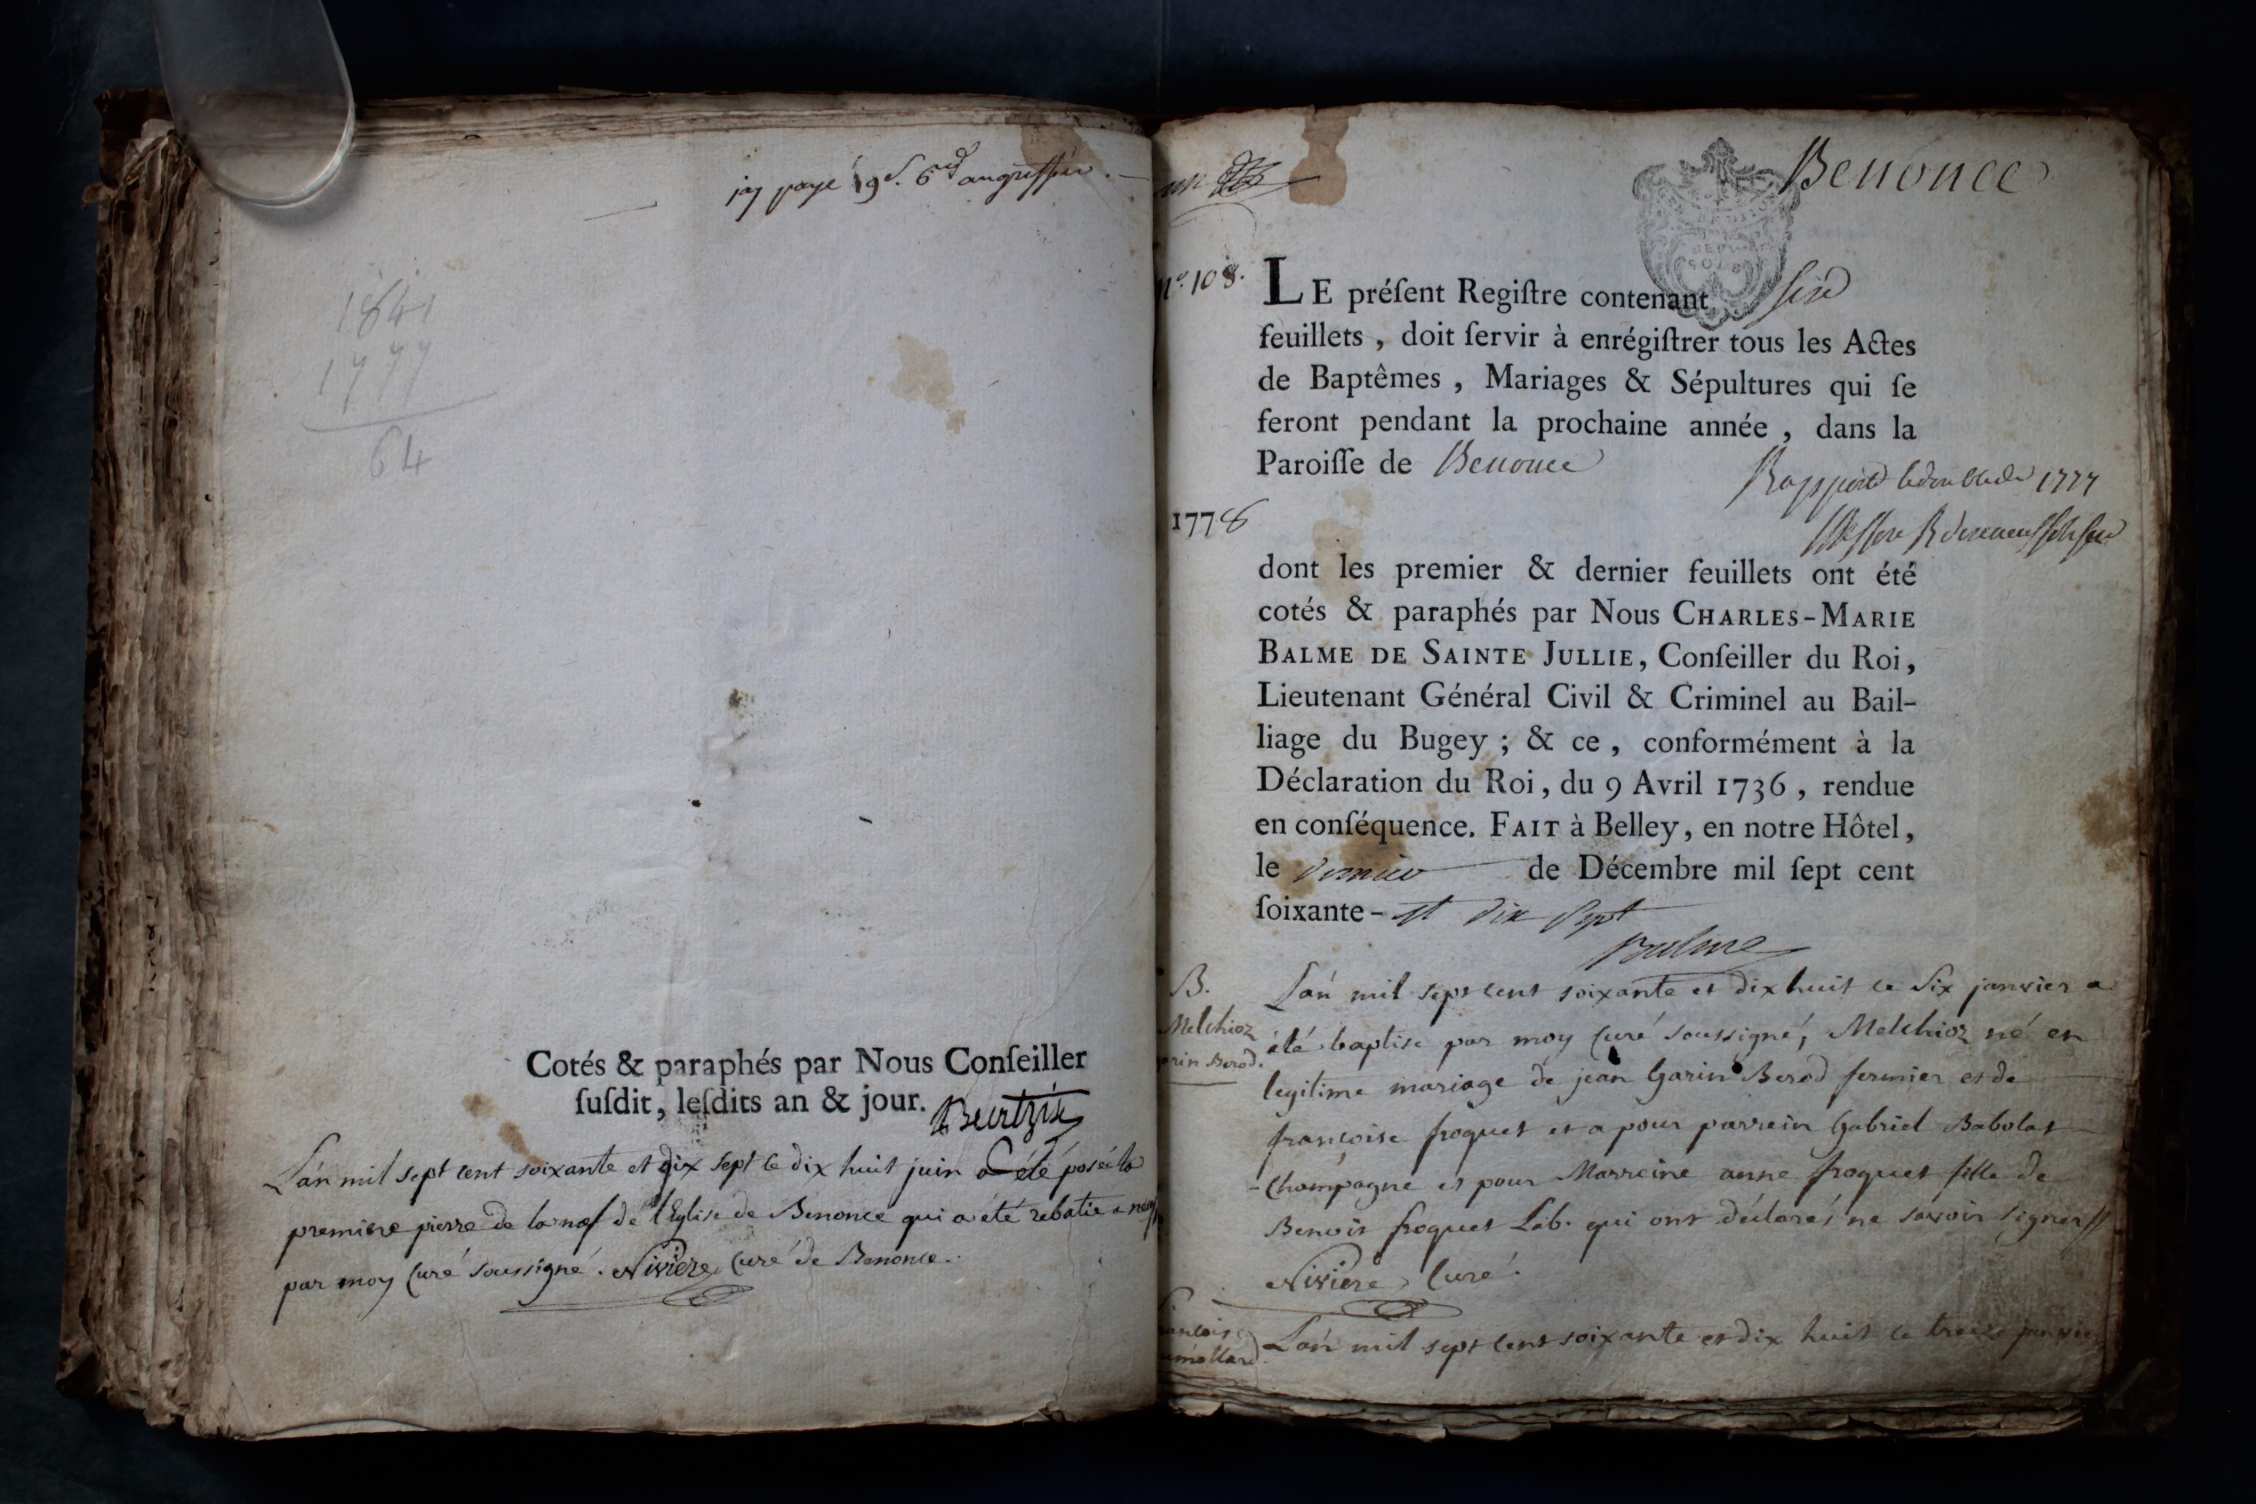 jay payé 19s. 6d au greffier.
1841
1777
64
Cotés & paraphés par Nous Conſeiller
ſuſdit, leſdits an & jour.
L'an mil sept cent soixante et dix sept le dix huit juin a été posée la
premiere pierre de la nef de l'Eglise de Benonce qui a été rebatie a neuf
par moy curé soussigné. Niviere curé de Benonce.
un
Benonce
no. 108.
LE préſent Regiſtre contenant six
feuillets, doit ſervir à enrégiſtrer tous les Actes
de Baptêmes, Mariages & Sépultures qui ſe
feront pendant la prochaine année, dans la
Paroiſſe de Benonce
Rapporté le double de 1777
1778
dont les premier & dernier feuillets ont été
cotés & paraphés par Nous CHARLES-MARIE
BALME DE SAINTE JULLIE, Conſeiller du Roi,
Lieutenant Général Civil & Criminel au Bail-
liage du Bugey; & ce, conformément à la
Déclaration du Roi, du 9 Avril 1736, rendue
en conſéquence. FAIT à Belley, en notre Hôtel,
le dernier de Décembre mil ſept cent
ſoixante- et dix sept
Balme
B.
Melchior
arin Berod.
L'an mil sept cent soixante et dix huit le six janvier a
été baptisé par moy curé soussigné, Melchior né en
legitime mariage de jean Garin Berod fermier et de
françoise froquet et a pour parrein Gabriel Babolat
Champagne et pour Marreine anne froquet fille de
Benoit froquet Lab. qui ont déclarés ne savoir signer
Niviere curé.
ancois
mollard.
L'an mil sept cent soixante et dix huit le treize janvier